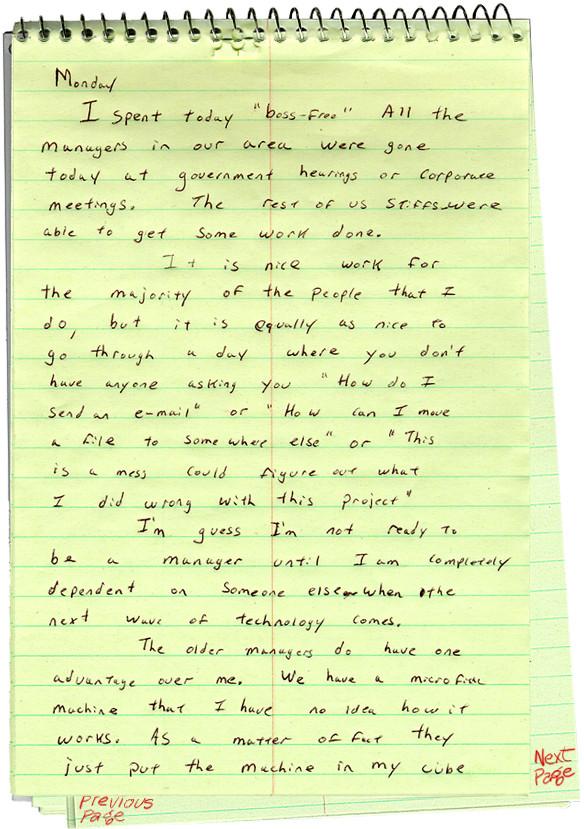 Monday
I spent today "boss-free" All the
managers in our area were gone
today at government hearings or corporate
meetings. The rest of us stiffs were
able to get some work done.
It is nice work for
the majority of the people that I
do, but it is equally as nice to
go through a day where you don't
have anyone asking you "How do I
send an e-mail" or "How can I move
a file to somewhere else" or "This
is a mess could figure out what
I did wrong with this project"
I'm guess I'm not ready to
be a manager until I am completely
dependent on someone else when the
next wave of technology comes.
The older managers do have one
advantage over me. We have a microfilm
machine that I have no idea how it
works. As a matter of fact they
just put the machine in my cube
Next
Page
Previous
Page